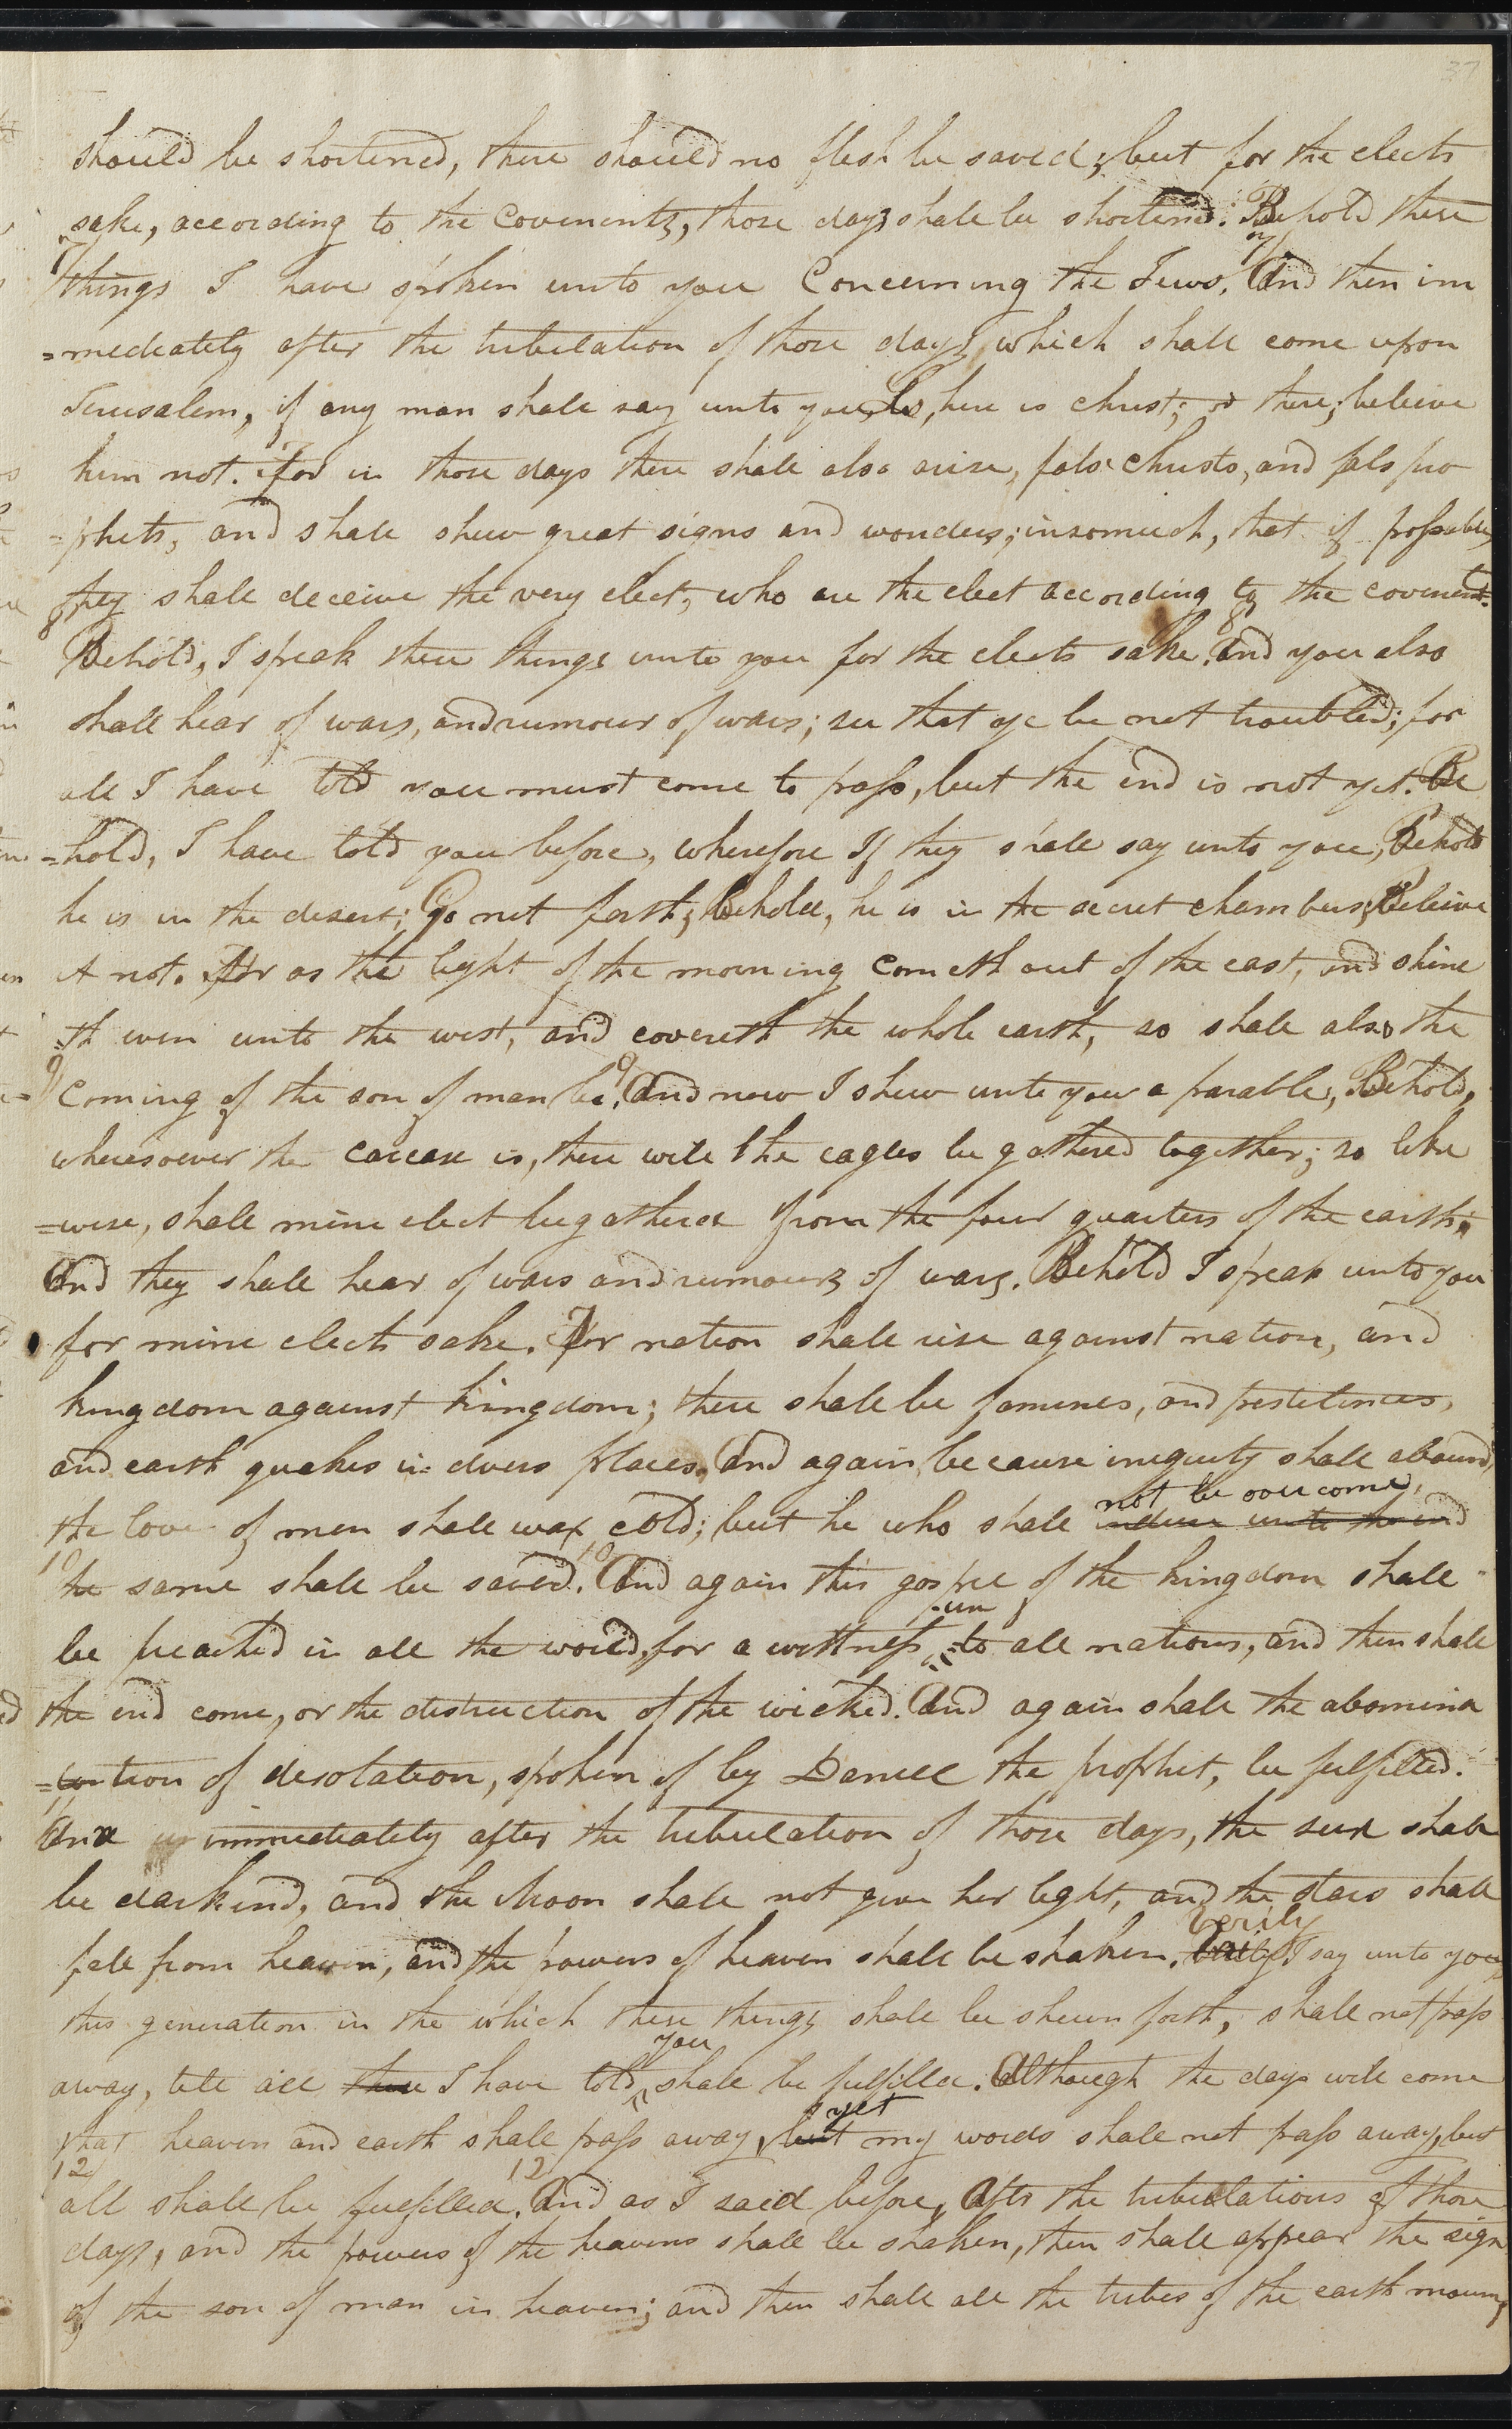 37
should be shortened, there should no flesh be saved; but for the elects
sake, according to the Covenents, those days shall be shortened. Behold these
7 7
things I have spoken unto you Concerning the Jews. And then im
=mediately after the tribulation of those days, which shall come upon
Jerusalem, if any man shall say unto you, Lo, here is christ; or there; beleive
him not. For in those days there shall also arise, false christs, and fals pro
=phets, and shall shew great signs and wonders; insomuch, that if possable,
they shall deceive the very elect, who are the elect according to the covenent.
8 8
Behold, I speak these things unto you for the elects sake. And you also
shall hear of wars, and rumour of wars; see that ye be not troubled; for
all I have told you must come to pass, but the end is not yet. Be
=hold, I have told you before, wherefore If they shall say unto you, Behold
he is in the desert; Go not forth; Behold, he is in the secret chambers; Beleive
it not. For as the light of the morning cometh out of the east, and shine
=th even unto the west, and covereth the whole earth, so shall also the
9 9
Coming of the son of man be. And now I shew unto you a parable, Behold,
wheresoever the carcase is, there will the eagles be gathered together; so like
=wise, shall mine elect be gathered from the four quarters of the earth.
And they shall hear of wars and rumours of wars. Behold I speak unto you
for mine elects sake. For nation shall rise against nation, and
kingdom against kingdom; there shall be famines, and pestelences,
and earth quakes in divers places. And again, because iniquity shall abound,
not be overcome,
the love of men shall wax cold; but he who shall induer unto the end
10 10
the same shall be saved. And again this gospel of the kingdom shall
un
be preached in all the world, for a wittness to all nations, and then shall
the end come, or the distruction of the wicked. And again shall the abomina
=tion of desolation, spoken of by Daniel the prophet, be fulfilled.
11
And immediately after the tribulation of those days, the sun shall
be darkend, and the Moon shall not give her light, and the stars shall
Verily
fall from heaven, and the powers of heaven shall be shaken. I say unto you,
this generation in the which these things shall be shewn forth, shall not pass
you
away, till all these I have told shall be fulfilled. Although the days will come
yet
that heaven and earth shall pass away, but my words shall not pass away, but
12 12
all shall be fulfilled. And as I said before, After the tribulations of those
days, and the powers of the heavens shall be shaken, then shall appear the sign
of the son of man in heaven; and then shall all the tribes of the earth mourn,